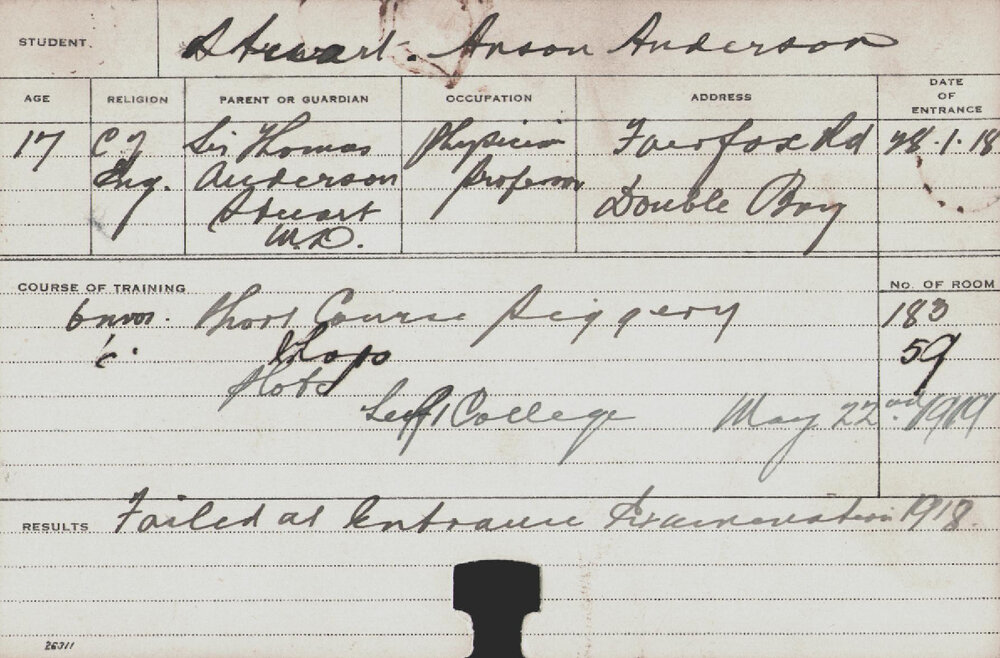 STUDENT. Stewart. Anson Anderson
AGE RELIGION PARENT OR GUARDIAN OCCUPATION ADDRESS DATE OF ENTRANCE
17 C of Sir Thomas Physician Fairfax Rd 28.1.18
Eng. Anderson Professor
Stuart Double Bay
M.D.
COURSE OF TRAINING No. OF ROOM
6 mos. Short Course Piggery 183
Shops 59
Left College May 22nd 1919
RESULTS Failed at Entrance Examination 1918.
26311